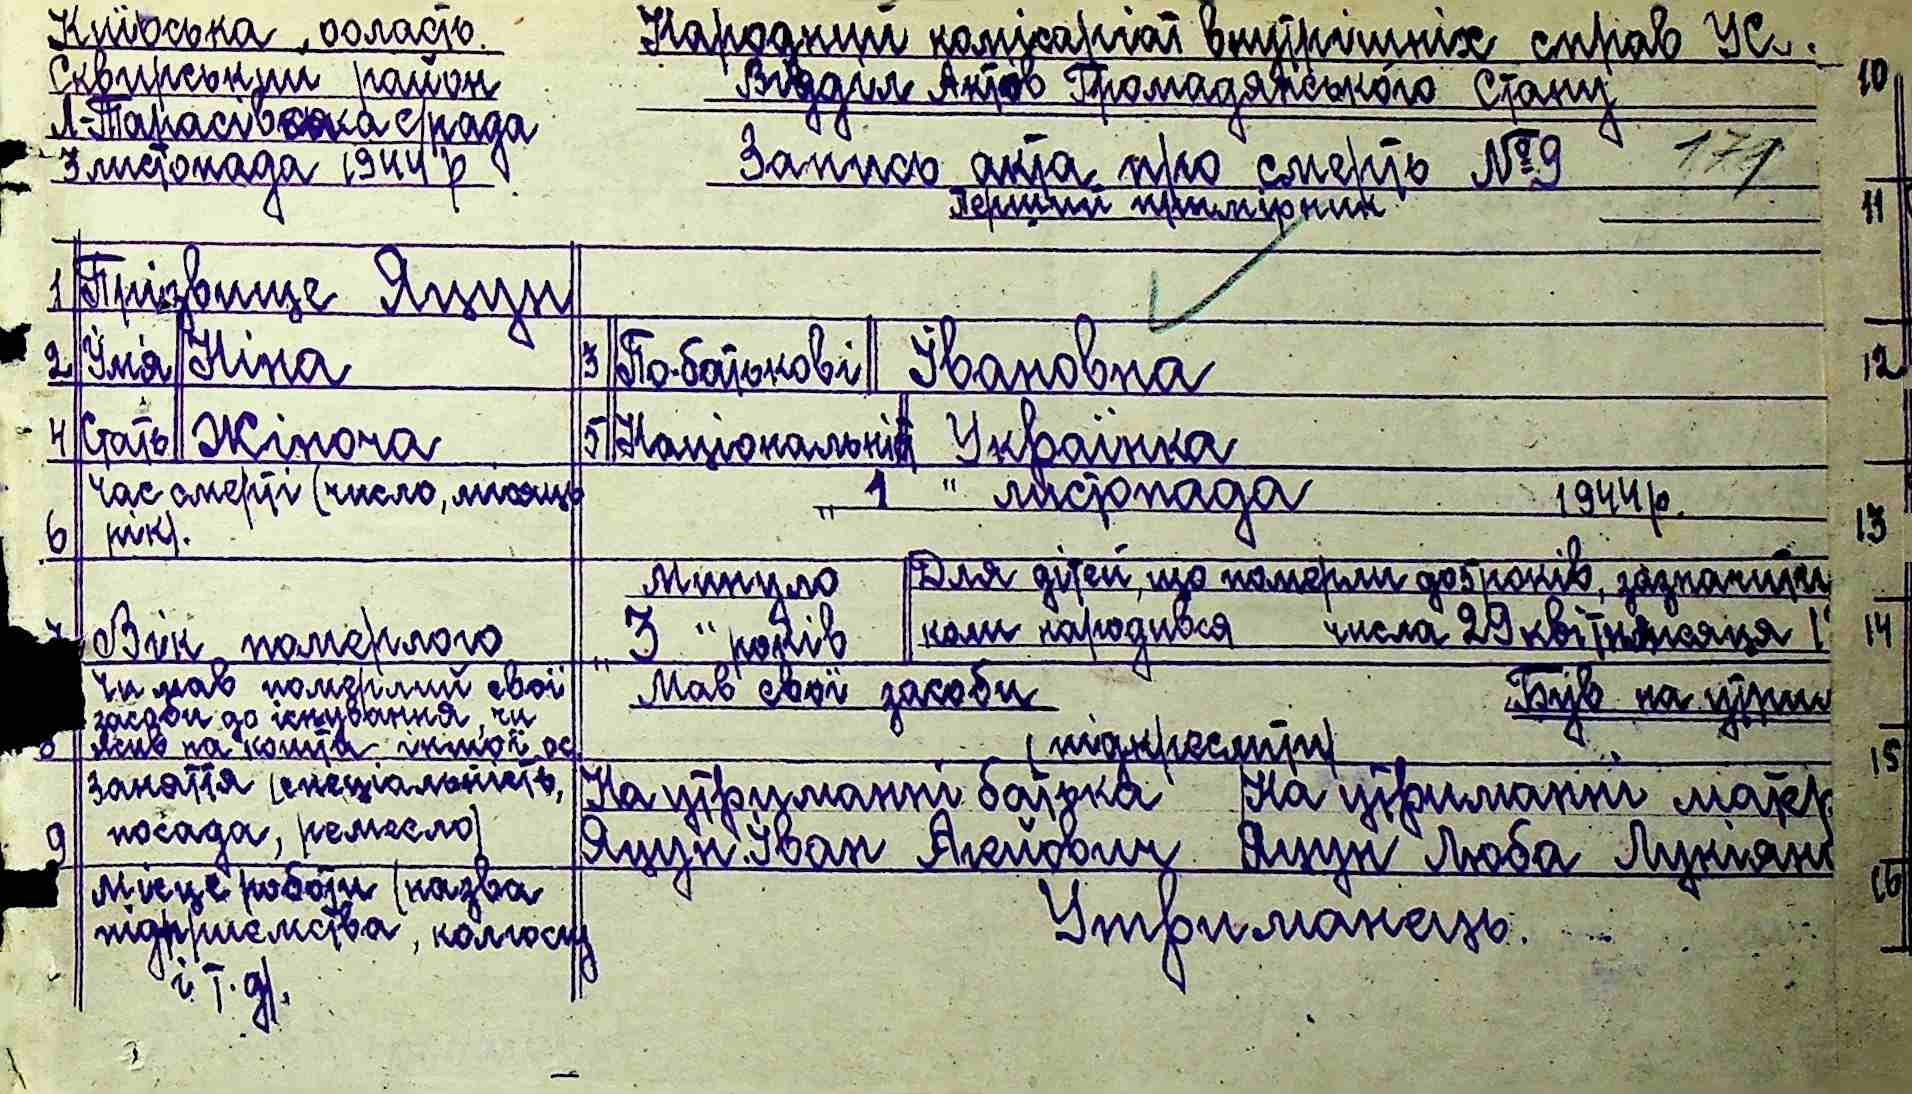 Київська область.
Сквирський район
Л-Тарасівська с/рада
3 листопада 1944 р
Народний комісаріат внутрішніх справ УС
Відділ Актов Громадянського Стану
Запись акта про смерть №9
171
Перший примірник
1 Прізвище Яцун
2 Їм'я Ніна 3 По-батькові Івановна
4 Стать Жіноча 5 Національність Українка
6 Час смерті (число, місяць рік). „ 1 " листопада 1944 р.
7 Вік померлого
Минуло
„ 3 " років
Для дітей, що померли до 5 років, зазначити
коли народився числа 29 квітня місяця 1
8 Чи мав померлий свої
засоби до існування, чи
жив на кошта іншої ос.
Мав свої засоби Був на утрим
(підкреслити)
9 Заняття (спеціальність,
посада, ремесло)
На утриманні батька На утриманні матер
Яцун Іван Яцун Люба Лукіян
Місце роботи (назва
підприємства, колгоспу
і т. д).
Утриманець.
10
11
12
13
14
15
16